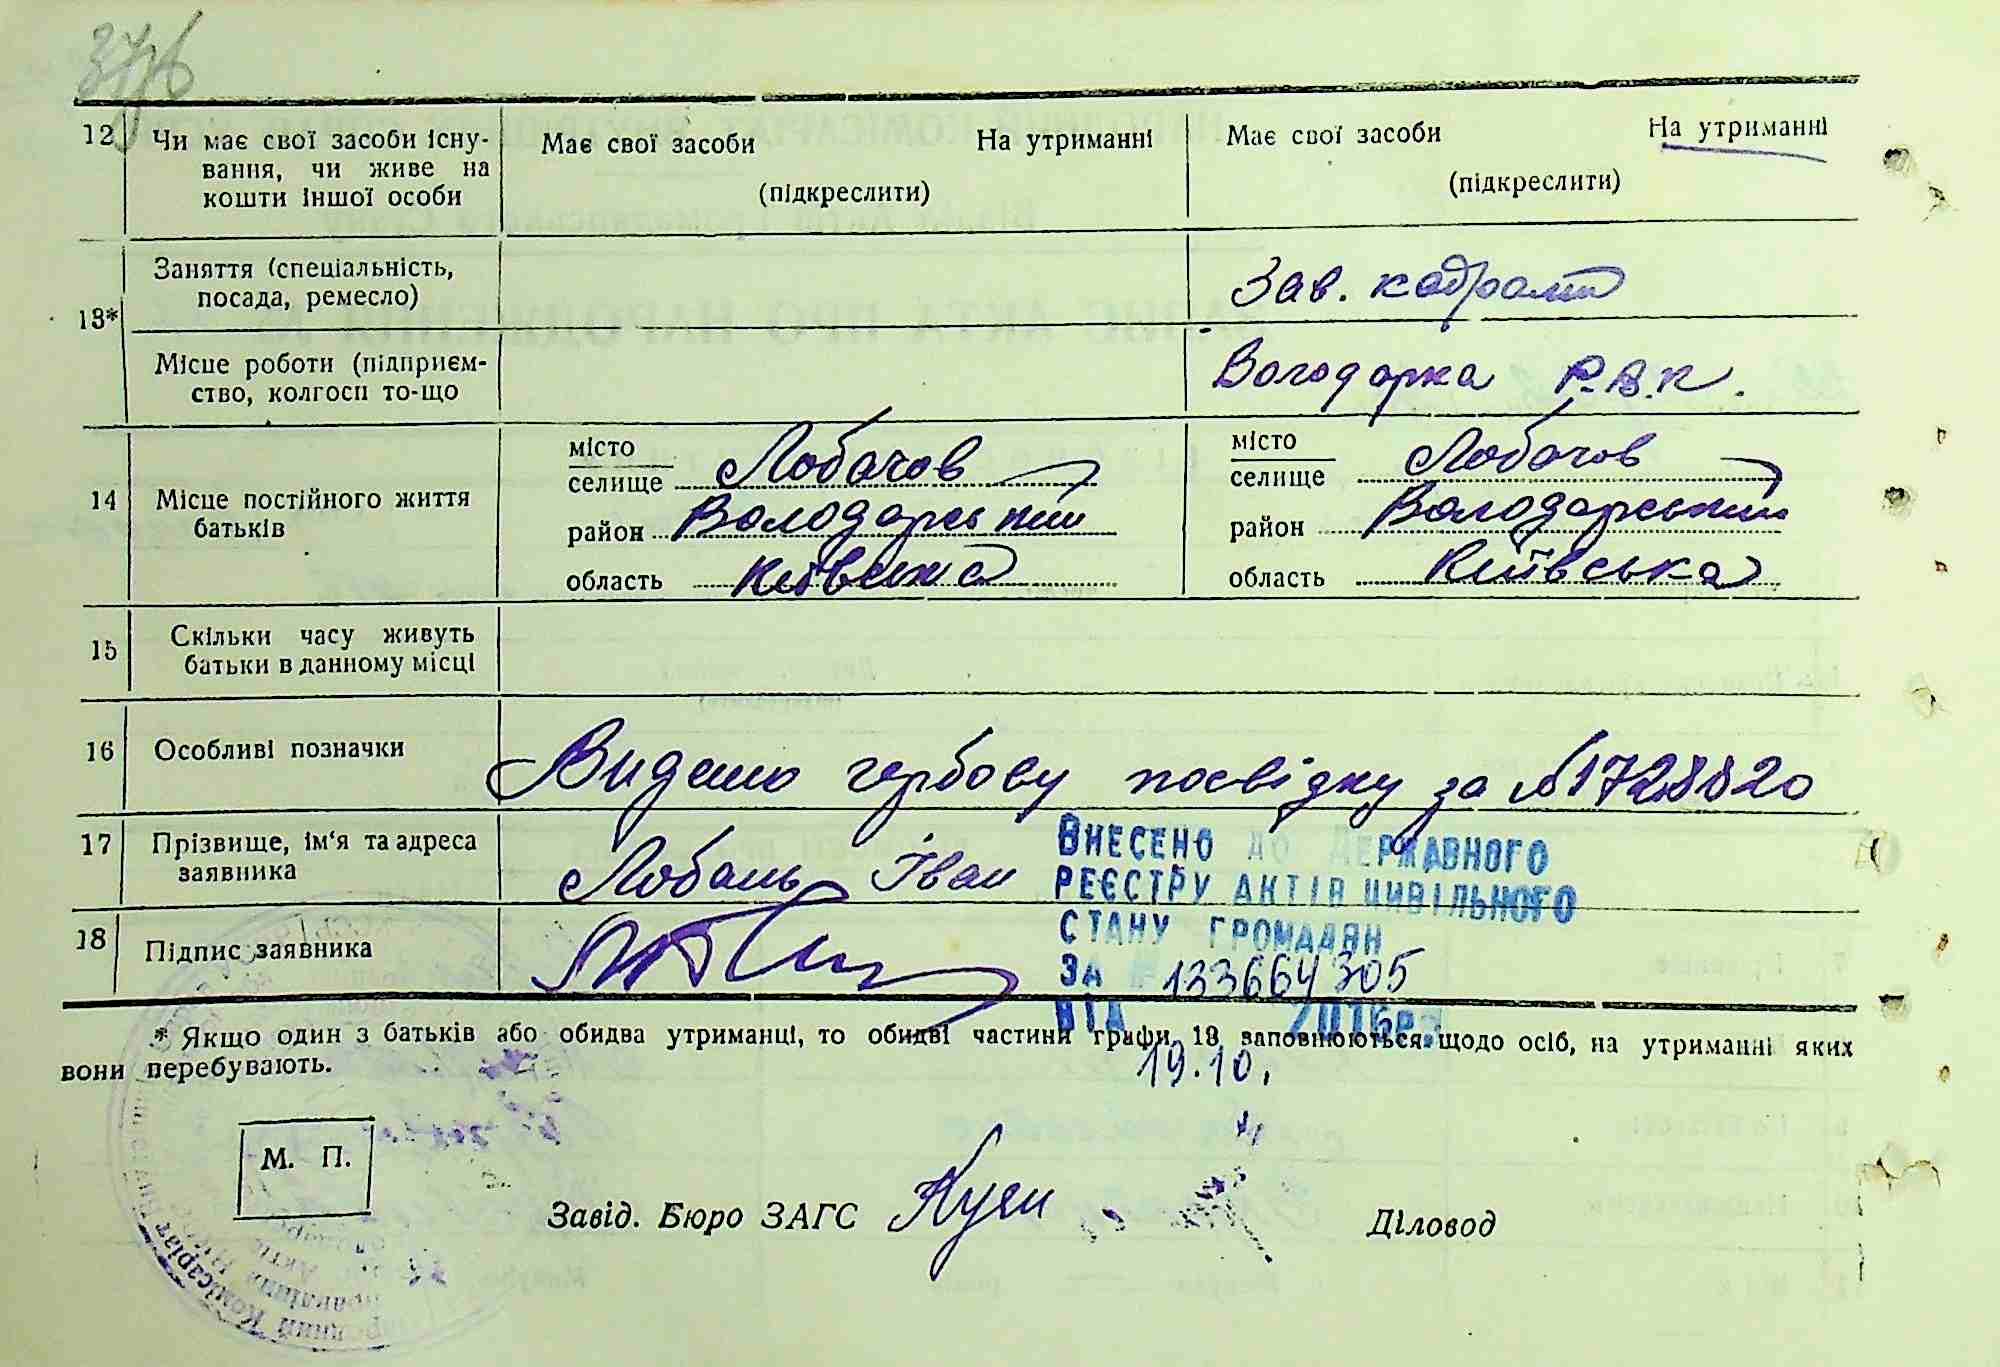 12 Чи має свої засоби існу-
вання, чи живе на
кошти іншої особи
Має свої засоби На утриманні
(підкреслити)
Має свої засоби На утриманні
(підкреслити)
13*
Заняття (спеціальність,
посада, ремесло)
Зав. кадрами
Місце роботи (підприєм-
ство, колгосп то-що
Володарка Р.В.К.
14 Місце постійного життя
батьків
місто
селище Лобачов
район Володарський
область Київська
місто
селище Лобачов
район Володарський
область Київська
15 Скільки часу живуть
батьки в данному місці
16 Особливі позначки
Видано гербову посвідку за №1728820
17 Прізвище, ім'я та адреса
заявника
Лобань Іван
18 Підпис заявника
ВНЕСЕНО ДО ДЕРЖАВНОГО
РЕЄСТРУ АКТІВ ЦИВІЛЬНОГО
СТАНУ ГРОМАДЯН
ЗА № 133664305
ВІД 2016р.
19.10.
* Якщо один з батьків або обидва утриманці, то обидві частини графи 13 заповнюються щодо осіб, на утриманні яких
вони перебувають.
М. П.
Завід. Бюро ЗАГС
Діловод